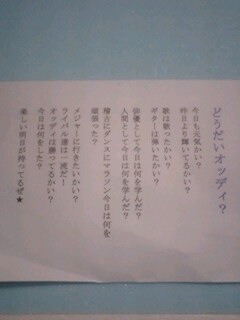 どうだいオッディ？
今日も元気かい？
昨日より輝いてるかい？
歌は歌ったかい？
ギターは弾いたかい？
俳優として今日は何を学んだ？
人間として今日は何を学んだ？
稽古にダンスにマラソン今日は何を
頑張った？
メジャーに行きたいかい？
ライバル達は一流だ！
オッディは勝ってるかい？
今日は何をした？
楽しい明日が待ってるぜ★